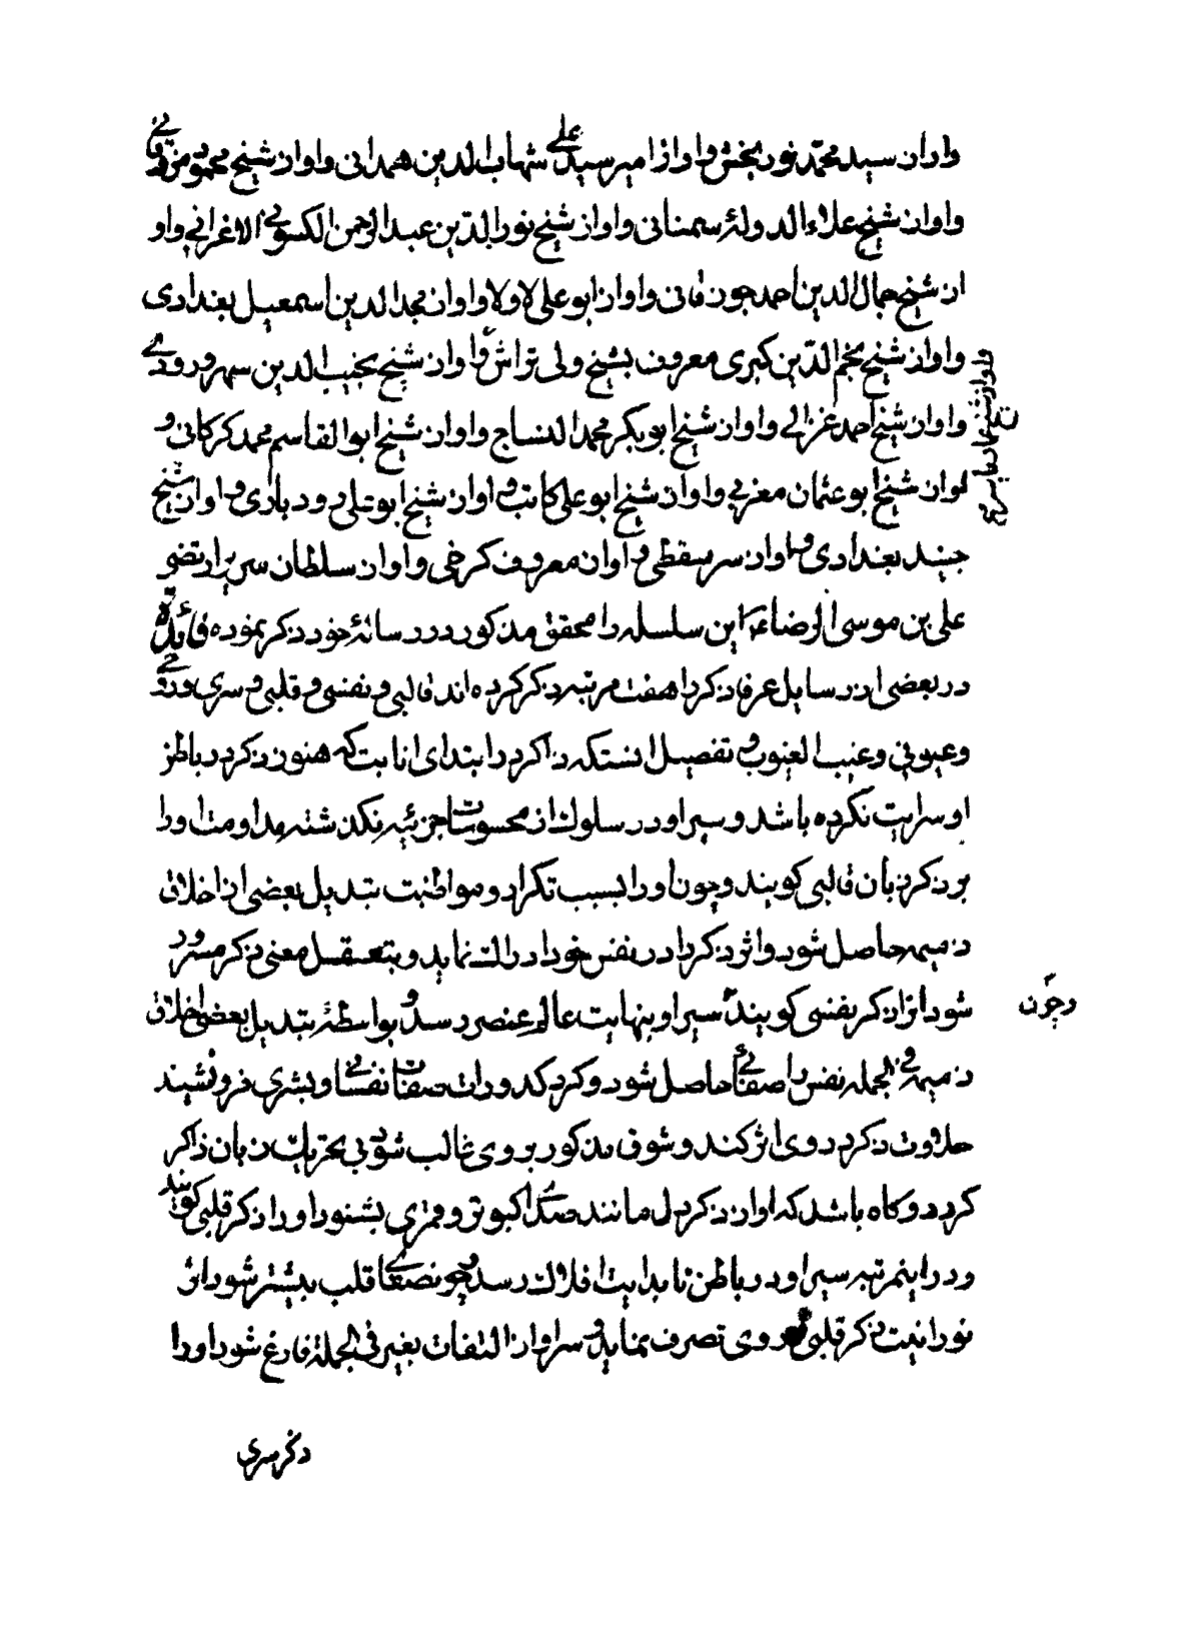 و او از سید محمد نوربخش و او از امیر سید علی شهاب الدین همدانی و او از شیخ محمود مزدقانی
و او از شیخ علاء الدوله سمنانی و او از شیخ نور الدین عبد الرحمن الکسوفی الاغرانی و او
از شیخ جمال الدین احمد جورفانی و او از ابو علی لاولا و او از مجد الدین اسمعیل بغدادی
و او از شیخ نجم الدین کبری معروف بشیخ ولی تراش و او از شیخ نجیب الدین سهروردی
و او از شیخ احمد غزالی و او از شیخ ابو بکر محمد النساج و او از شیخ ابوالقاسم محمد کرکانی و
او از شیخ ابو عثمان مغربی و او از شیخ ابو علی کاتب و او از شیخ ابو علی رودباری و او از شیخ
جنید بغدادی و او از سر سقطی و او از معروف کرخی و او از سلطان سریر ارتضی
علی بن موسی الرضا این سلسله را محقق مذکور در رسانهٔ خود ذکر نموده فائدة
در بعضی از رسایل عرفا ذکر را هفت مرتبه ذکر کرده اند قالبی و نفسی و قلبی و سری و روحی
و عیوبی و غیب الغیوب و تفصیل انستکه ذاکر در ابتدای انابت که هنوز ذکر در باطن
او سرایت نکرده باشد و سیر او در سلوک از محسوسات جزئیه نکذشته مداومت او را
بر ذکر زبان قالبی کویند و چون او را بسبب تکرار و مواظبت تبدیل بعضی از اخلاق
ذمیمه حاصل شود و اثر ذکر را در نفس خود ادراک نماید و بتعقل معنی ذکر مسرور
شود انرا ذکر نفسی کویند سیر او بنهایت عالم عنصر رسد و بواسطهٔ تبدیل بعضی اخلاق
وچون
ذمیمه فی الجمله نفس را صفائی حاصل شود و کرد کدورات صفات نفسانی و بشری فرو نشیند
حلاوت ذکر در وی اثر کند و شوق مذکور بر وی غالب شود بی تحریک زبان ذاکر
کردد و کاه باشد که او از ذکر دل مانند صدای کبوتر و قمری بشنود او را ذکر قلبی کویند
و در اینمرتبه سیر او در باطن تا بدایت افلاک رسد و چون صفای قلب بیشتر شود اثر
نورانیت ذکر قلبی در وی تصرف نماید و سر او از التفات بغیر فی الجملة فارغ شود او را
ذکر سری